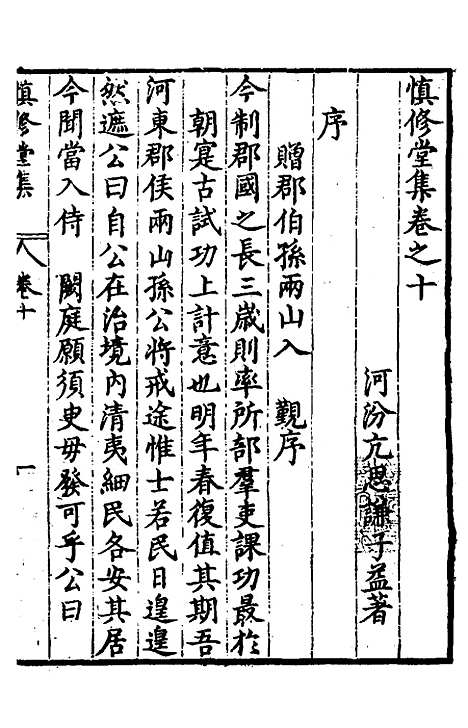 慎修堂集卷之十
河汾亢思謙子益著
序
贈郡伯孫兩山入　覲序
今制郡國之長三歲則率所部羣吏課功最於
朝寔古試功上計意也明年春復值其期吾
河東郡侯兩山孫公將戒途惟士若民日遑遑
然遮公曰自公在治境內清夷細民各安其居
今聞當入侍　闕庭願須臾毋發可乎公曰
慎修堂集　卷十　一